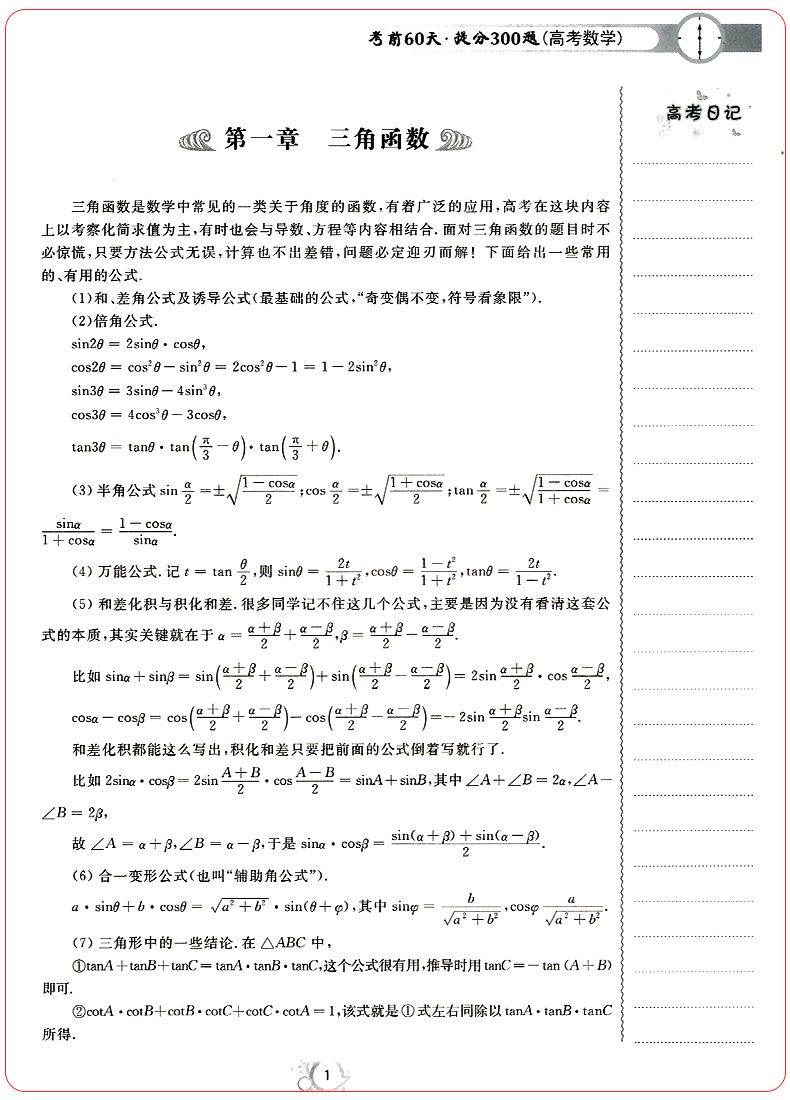 考前60天·提分300题(高考数学)
高考日记
第一章 三角函数
三角函数是数学中常见的一类关于角度的函数,有着广泛的应用,高考在这块内容
上以考察化简求值为主,有时也会与导数、方程等内容相结合.面对三角函数的题目时不
必惊慌,只要方法公式无误,计算也不出差错,问题必定迎刃而解!下面给出一些常用
的、有用的公式.
(1)和、差角公式及诱导公式(最基础的公式,“奇变偶不变,符号看象限”).
(2)倍角公式.
sin2θ = 2sinθ·cosθ,
cos2θ = cos²θ-sin²θ = 2cos²θ-1 = 1-2sin²θ,
sin3θ = 3sinθ-4sin³θ,
cos3θ = 4cos³θ-3cosθ,
tan3θ = tanθ·tan(π/3-θ)·tan(π/3+θ).
(3)半角公式 sin α/2 =±√((1-cosα)/2);cos α/2 =±√((1+cosα)/2);tan α/2 =±√((1-cosα)/(1+cosα)) =
sinα/(1+cosα) = (1-cosα)/sinα.
(4)万能公式.记 t = tan θ/2,则 sinθ = 2t/(1+t²),cosθ = (1-t²)/(1+t²),tanθ = 2t/(1-t²).
(5)和差化积与积化和差.很多同学记不住这几个公式,主要是因为没有看清这套公
式的本质,其实关键就在于 α = (α+β)/2+(α-β)/2,β = (α+β)/2-(α-β)/2.
比如 sinα+sinβ = sin((α+β)/2+(α-β)/2)+sin((α+β)/2-(α-β)/2) = 2sin (α+β)/2·cos (α-β)/2,
cosα-cosβ = cos((α+β)/2+(α-β)/2)-cos((α+β)/2-(α-β)/2) =-2sin (α+β)/2 sin (α-β)/2.
和差化积都能这么写出,积化和差只要把前面的公式倒着写就行了.
比如 2sinα·cosβ = 2sin (A+B)/2·cos (A-B)/2 = sinA+sinB,其中∠A+∠B = 2α,∠A-
∠B = 2β,
故 ∠A = α+β,∠B = α-β,于是 sinα·cosβ = (sin(α+β)+sin(α-β))/2.
(6)合一变形公式(也叫“辅助角公式”).
a·sinθ+b·cosθ = √(a²+b²)·sin(θ+φ),其中 sinφ = b/√(a²+b²),cosφ a/√(a²+b²).
(7)三角形中的一些结论.在 △ABC 中,
①tanA+tanB+tanC=tanA·tanB·tanC,这个公式很有用,推导时用 tanC=-tan (A+B)
即可.
②cotA·cotB+cotB·cotC+cotC·cotA=1,该式就是①式左右同除以 tanA·tanB·tanC
所得.
1